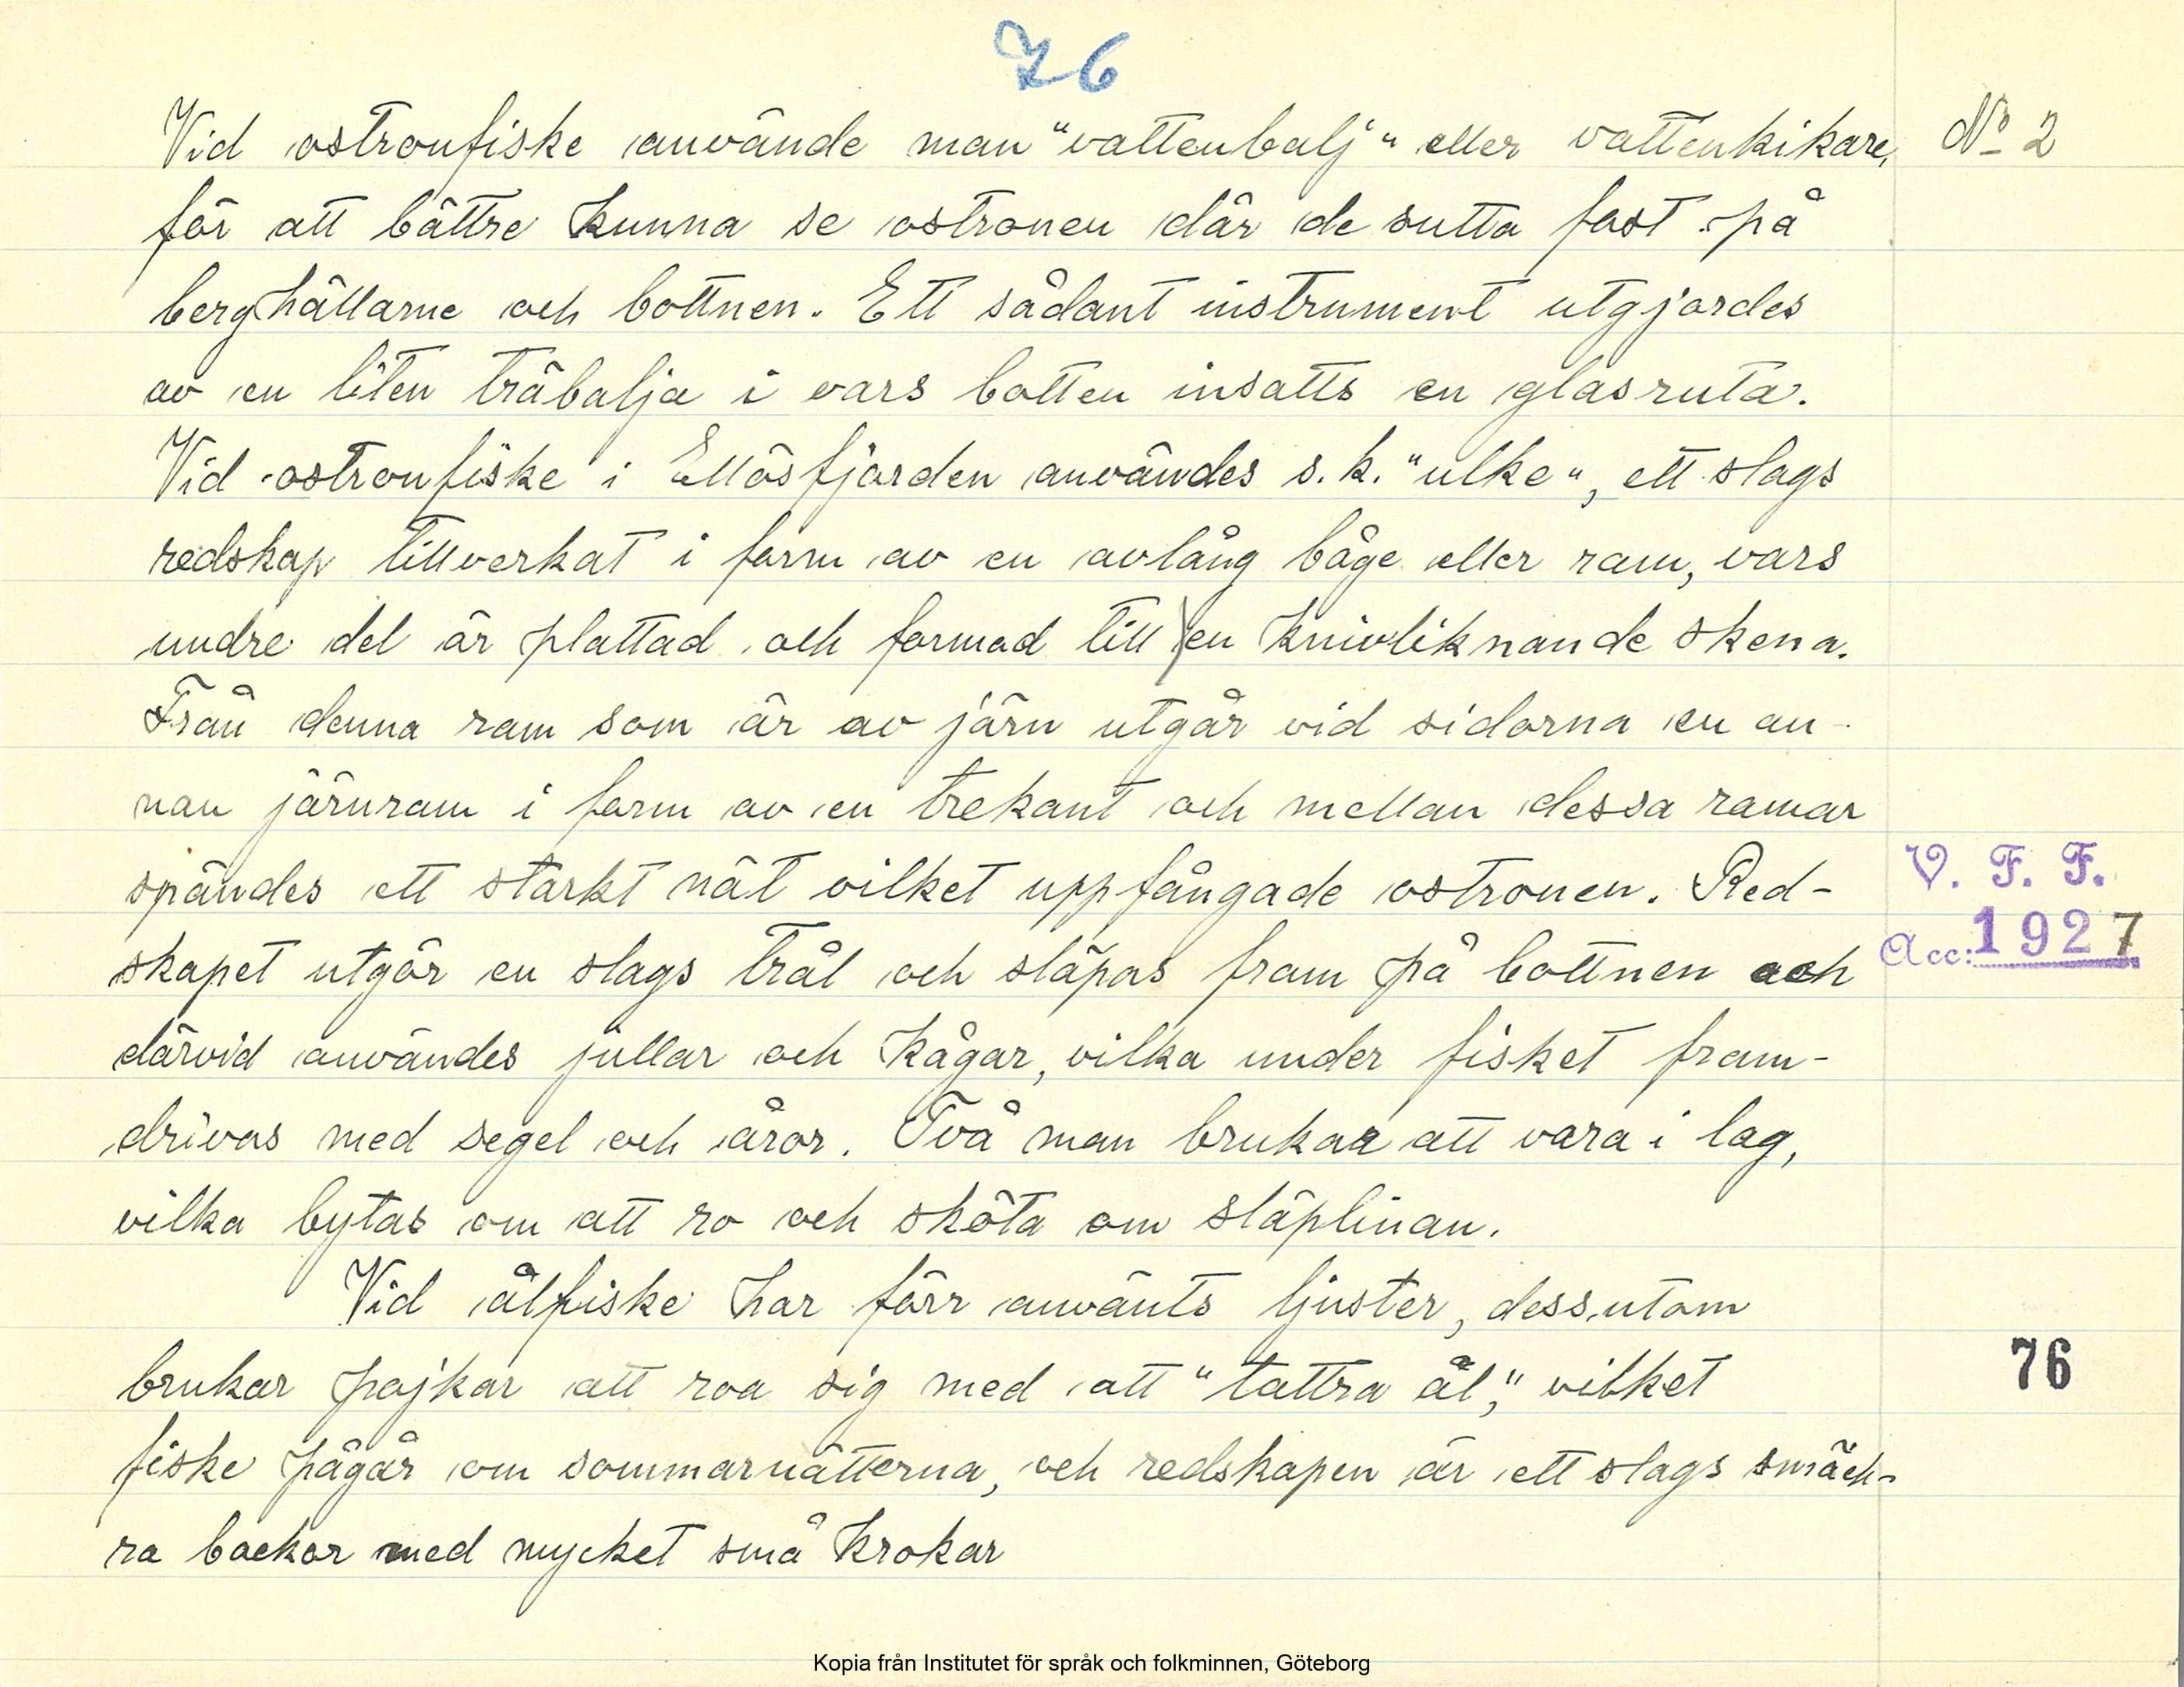 76
Vid ostronfiske använde man "vattenbalj" eller vattenkikare, No 2
för att bättre kunna se ostronen där de sutta fast på
berghällarne och bottnen. Ett sådant instrument utgjordes
av en liten träbalja i vars botten insatts en glasruta.
Vid ostronfiske i Ellösfjorden användes s.k. "ulke", ett slags
redskap tillverkat i form av en avlång båge eller ram, vars
undre del är plattad och formad till en knivliknande skena.
Från denna ram som är av järn utgår vid sidorna en an-
nan järnram i form av en trekant och mellan dessa ramar
spändes ett starkt nät vilket uppfångade ostronen. Red-
V. F. F.
skapet utgör en slags trål och släpas fram på bottnen och
Acc: 1927
därvid användes jullar och kågar, vilka under fisket fram-
drivas med segel och åror. Två man brukar att vara i lag,
vilka bytas om att ro och sköta om släplinan.
Vid ålfiske har förr använts ljuster, dessutom
brukar pojkar att roa sig med att "tattra ål," vilket
76
fiske pågår om sommarnätterna, och redskapen är ett slags smäck-
ra backor med mycket små krokar
Kopia från Institutet för språk och folkminnen, Göteborg